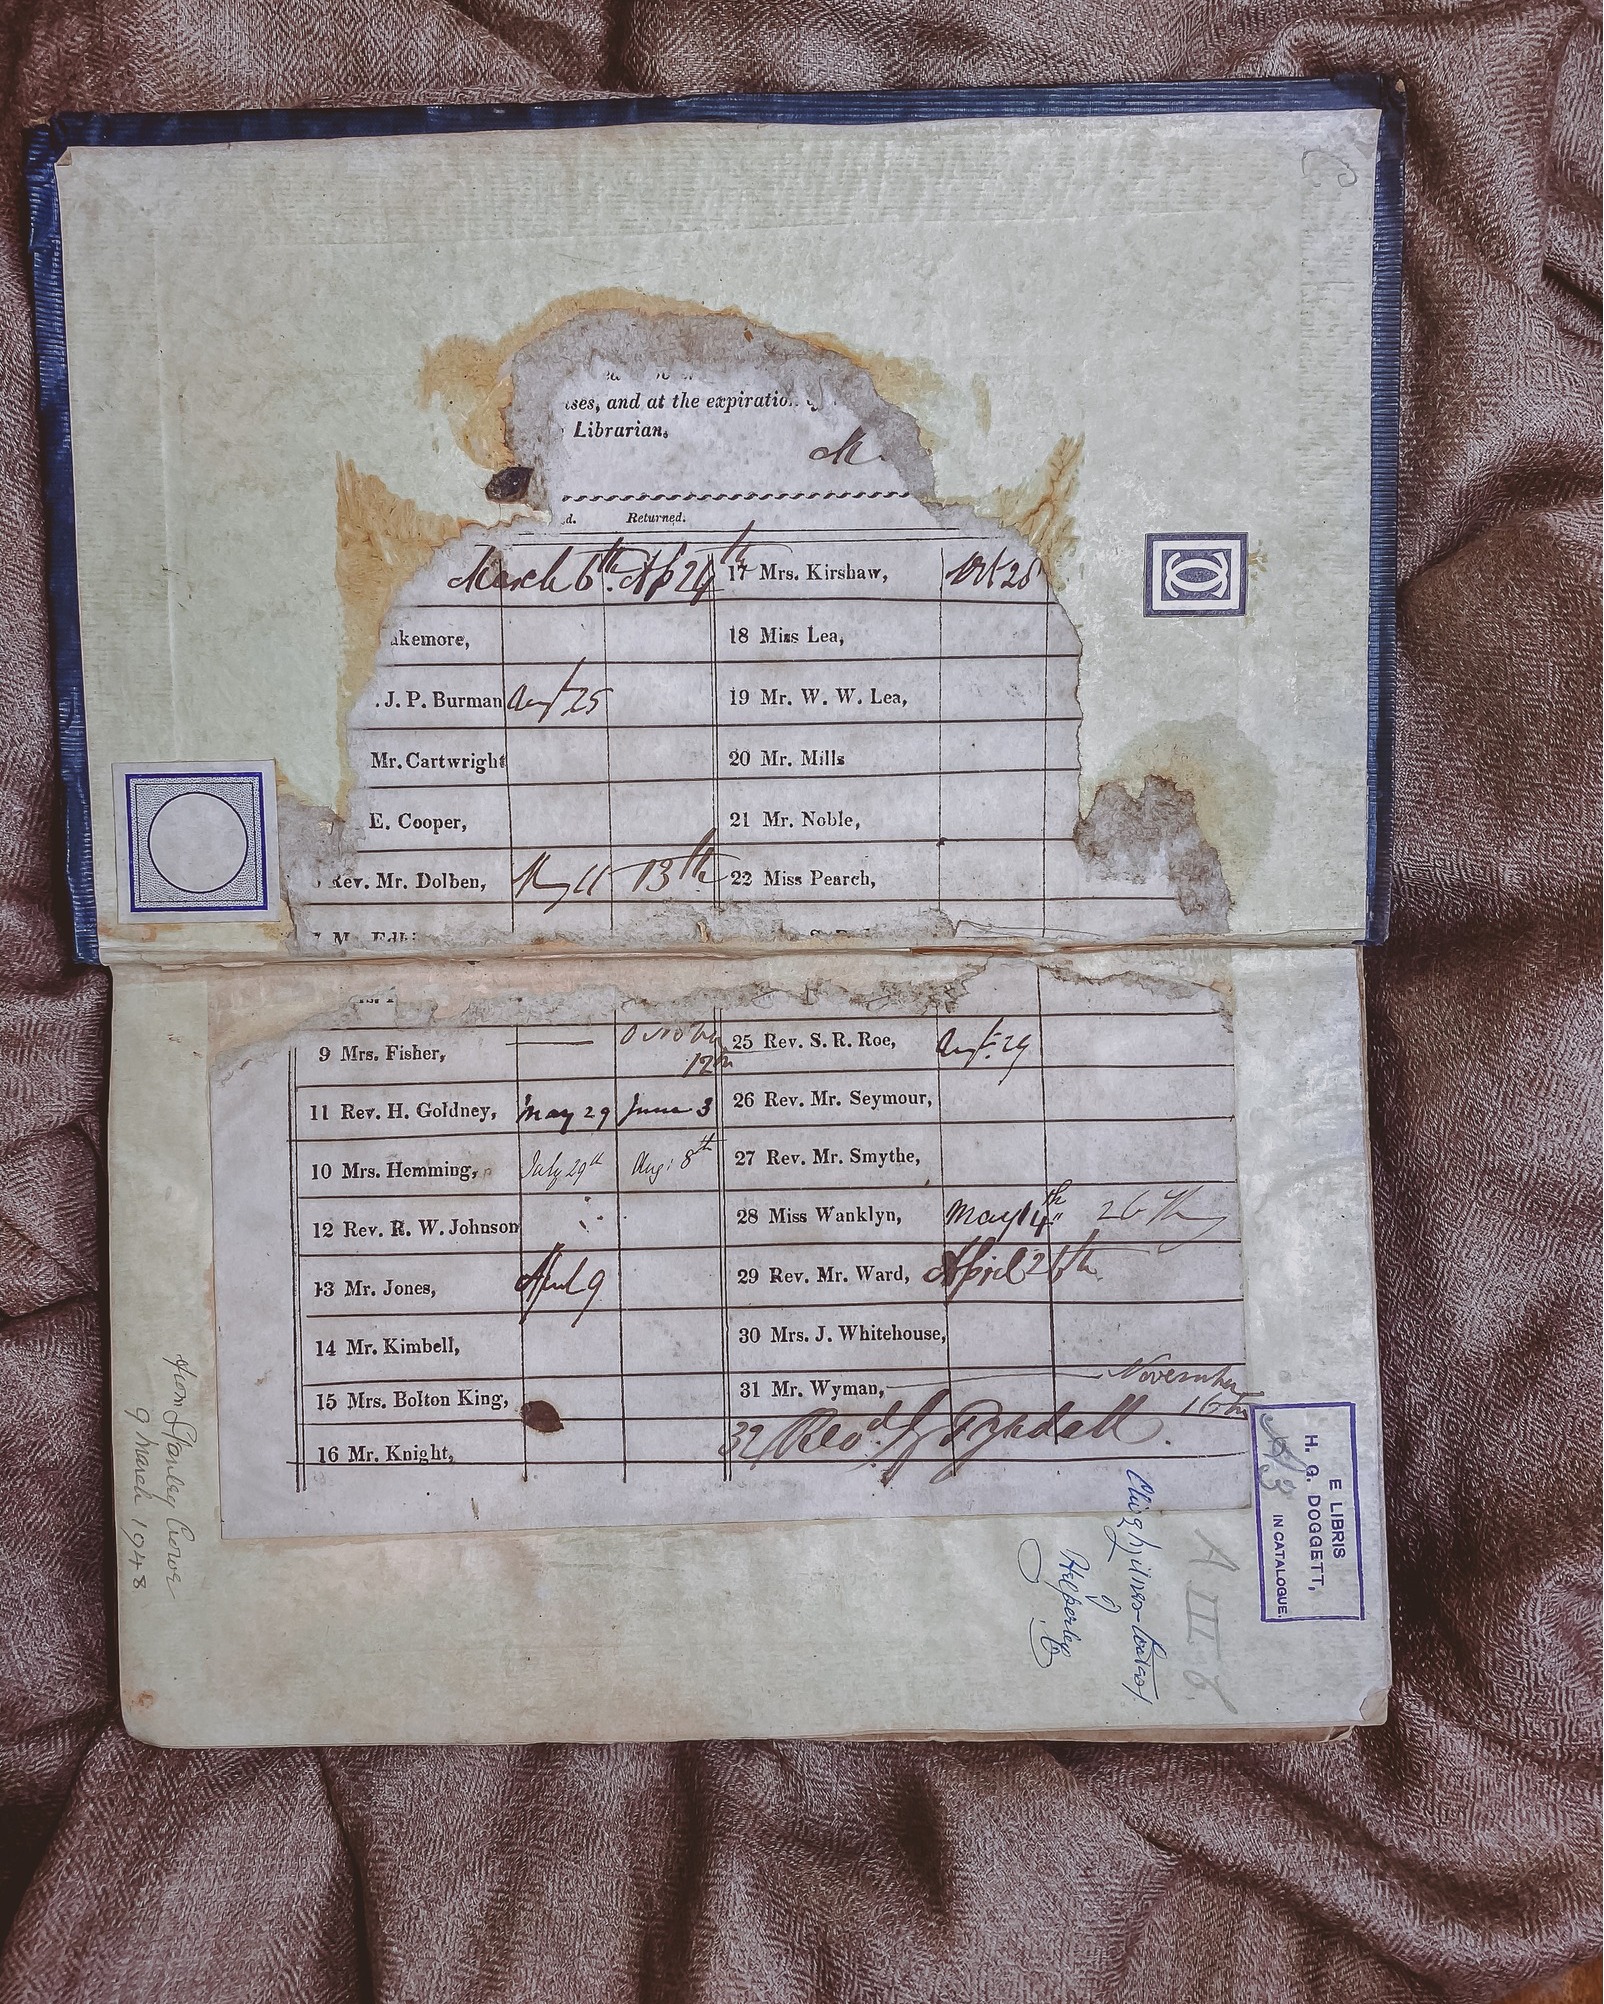 ises, and at the expiration
Librarian.
d. Returned.
March 6th Ap 24th 17 Mrs. Kirshaw, Oct 28
akemore, 18 Miss Lea,
. J. P. Burman Augt 25 19 Mr. W. W. Lea,
Mr. Cartwright 20 Mr. Mills
E. Cooper, 21 Mr. Noble,
Rev. Mr. Dolben, May 11 13th 22 Miss Pearch,
9 Mrs. Fisher, October 12th 25 Rev. S. R. Roe, Augt. 29
11 Rev. H. Goldney, May 29 June 3 26 Rev. Mr. Seymour,
10 Mrs. Hemming, July 29th Aug: 8th 27 Rev. Mr. Smythe,
12 Rev. R. W. Johnson 28 Miss Wanklyn, May 14th 26th
13 Mr. Jones, April 9 29 Rev. Mr. Ward, April 26th
14 Mr. Kimbell, 30 Mrs. J. Whitehouse,
15 Mrs. Bolton King, 31 Mr. Wyman, November 16th
16 Mr. Knight, 32 Revd. Tyndall.
E LIBRIS
H. G. DOGGETT,
IN CATALOGUE.
A III. 6.
from Stanley Crowe
9 March 1948